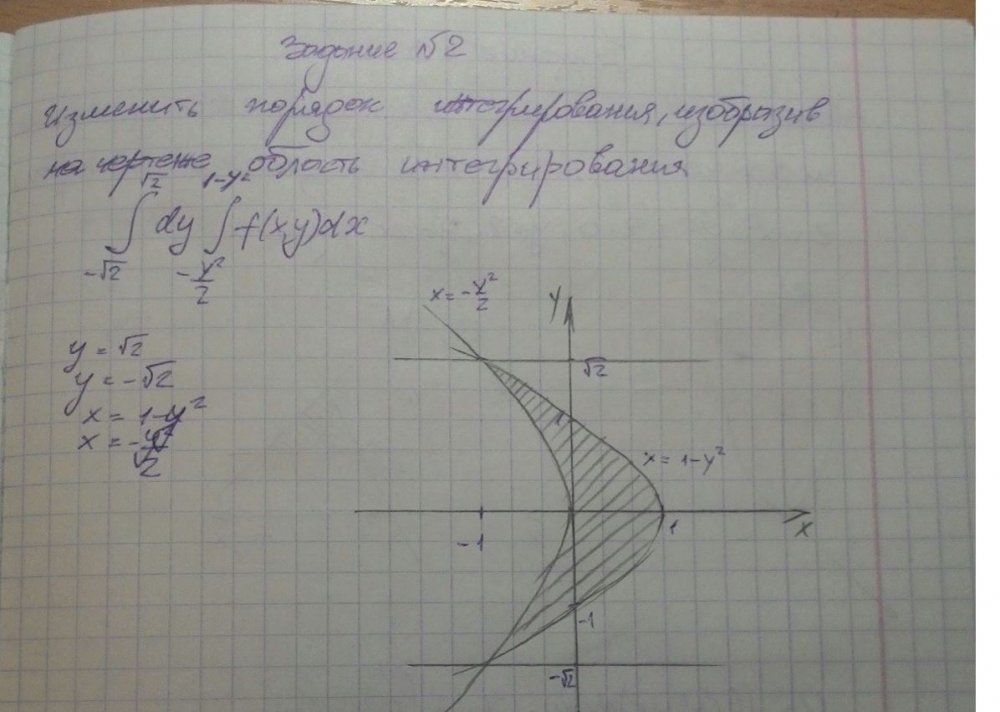 Задание №2
Изменить порядок интегрирования, изобразив
на чертеже область интегрирования
√2 1-y²
∫ dy ∫ f(x,y)dx
-√2 -y²/2
y = √2
y = -√2
x = 1-y²
x = -y²/2
x = -y²/2
y
√2
1
x = 1-y²
-1
1
x
-1
-√2